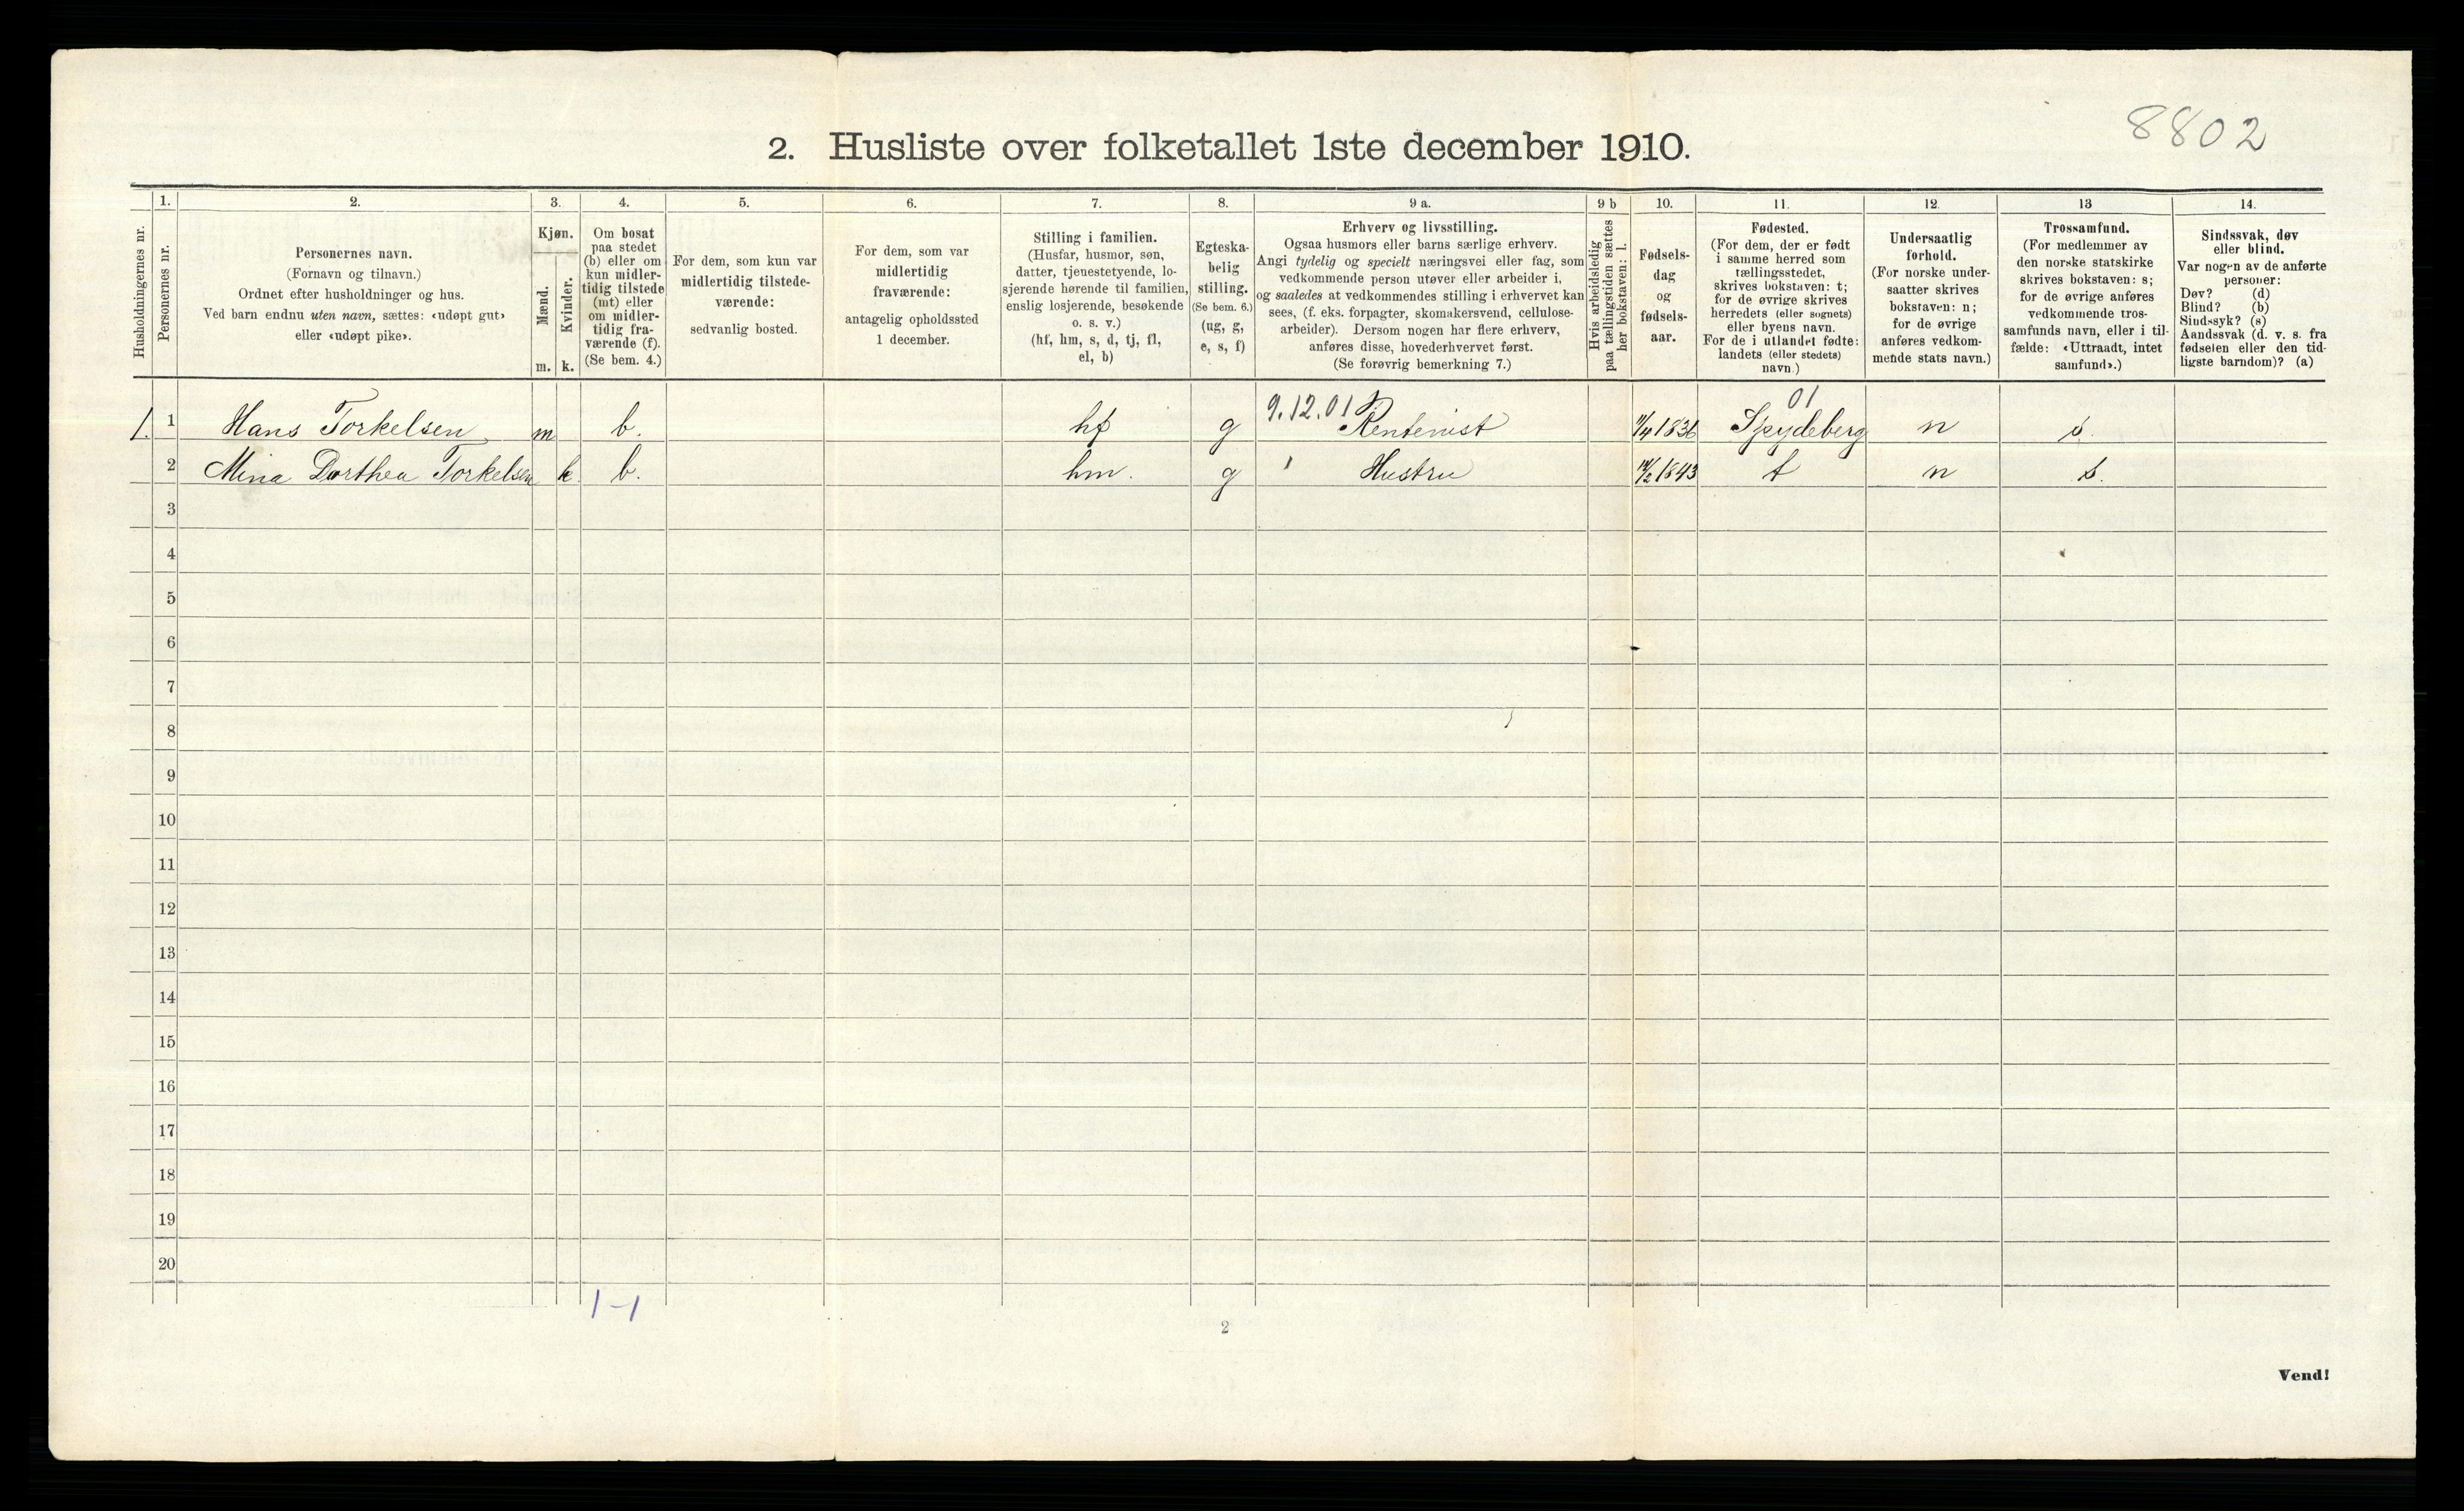 8802
2. Husliste over folketallet 1ste december 1910.
Husholdningernes nr.
1.
Personernes nr.
2.
Personernes navn.
(Fornavn og tilnavn.)
Ordnet efter husholdninger og hus.
Ved barn endnu uten navn, sættes: «udøpt gut»
eller «udøpt pike».
3.
Kjøn.
Mænd.
Kvinder.
m. k.
4.
Om bosat
paa stedet
(b) eller om
kun midler-
tidig tilstede
(mt) eller
om midler-
tidig fra-
værende (f).
(Se bem. 4.)
5.
For dem, som kun var
midlertidig tilstede-
værende:
sedvanlig bosted.
6.
For dem, som var
midlertidig
fraværende:
antagelig opholdssted
1 december.
7.
Stilling i familien.
(Husfar, husmor, søn,
datter, tjenestetyende, lo-
sjerende hørende til familien,
enslig losjerende, besøkende
o. s. v.)
(hf, hm, s, d, tj, fl,
el, b)
8.
Egteska-
belig
stilling.
(Se bem. 6.)
(ug, g,
e, s, f)
9 a.
Erhverv og livsstilling.
Ogsaa husmors eller barns særlige erhverv.
Angi tydelig og specielt næringsvei eller fag, som
vedkommende person utøver eller arbeider i,
og saaledes at vedkommendes stilling i erhvervet kan
sees, (f. eks. forpagter, skomakersvend, cellulose-
arbeider). Dersom nogen har flere erhverv,
anføres disse, hovederhvervet først.
(Se forøvrig bemerkning 7.)
9 b
Hvis arbeidsledig
paa tællingstiden sættes
her bokstaven: l.
10.
Fødsels-
dag
og
fødsels-
aar.
11.
Fødested.
(For dem, der er født
i samme herred som
tællingsstedet,
skrives bokstaven: t;
for de øvrige skrives
herredets (eller sognets)
eller byens navn.
For de i utlandet fødte:
landets (eller stedets)
navn.)
12.
Undersaatlig
forhold.
(For norske under-
saatter skrives
bokstaven: n;
for de øvrige
anføres vedkom-
mende stats navn.)
13
Trossamfund.
(For medlemmer av
den norske statskirke
skrives bokstaven: s;
for de øvrige anføres
vedkommende tros-
samfunds navn, eller i til-
fælde: «Uttraadt, intet
samfund».)
14.
Sindssvak, døv
eller blind.
Var nogen av de anførte
personer:
Døv? (d)
Blind? (b)
Sindssyk? (s)
Aandssvak (d. v. s. fra
fødselen eller den tid-
ligste barndom)? (a)
9.12.01 01
1. 1 Hans Torkelsen m b. hf g Rentenist 11/4 1836 Spydeberg n s.
2 Mina Dorthea Torkelsen k b. hm. g Hustru 14/2 1843 t n s.
3
4
5
6
7
8
9
10
11
12
13
14
15
16
17
18
19
20
1-1
2
Vend!